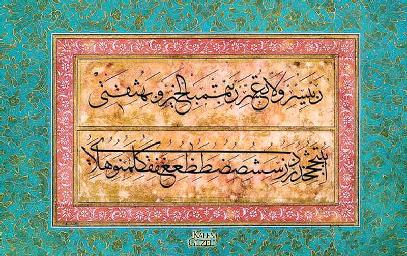 رب يسر ولا تعسر رب تمم بالخير وبه ثقتي
ابتثجحخدذرزسشصضطظعغفقكلمنوهلاي
KALEM
GÜZELİ